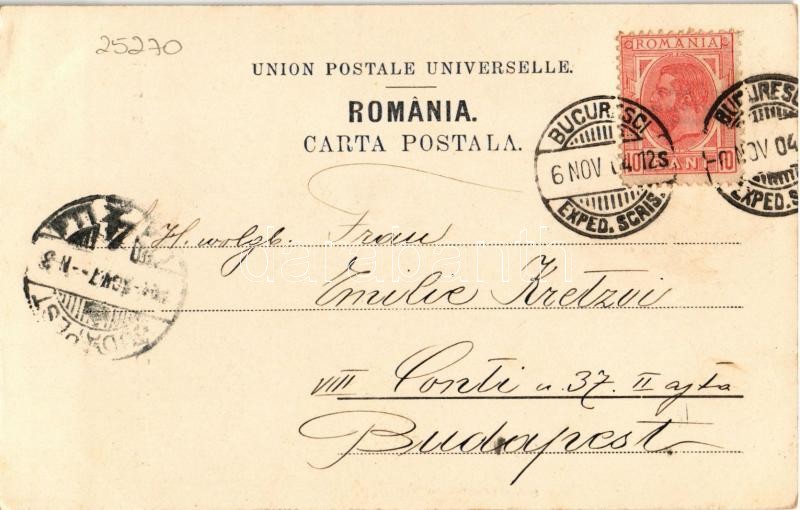 25270
UNION POSTALE UNIVERSELLE.
ROMÂNIA.
CARTA POSTALA.
ROMANIA
10 BANI 10
BUCURESCI
6 NOV 04 12S
EXPED. SCRIS.
BUCURESCI
NOV 04
EXPED. S
BUDAPEST
H. wolgb. Frau
Emilie Kretzoi
VIII Conti u. 37. II ajta
Budapest
darabanth